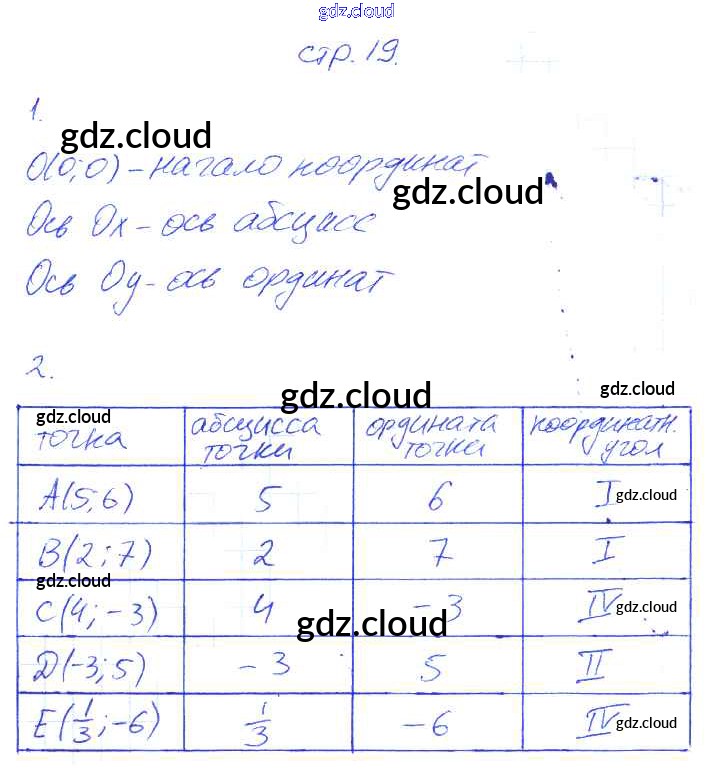 gdz.cloud
gdz.cloud
стр. 19.
1.
gdz.cloud
O(0;0) – начало координат
gdz.cloud
Ось Ox – ось абсцисс
Ось Oy – ось ординат
2.
gdz.cloud
gdz.cloud
gdz.cloud
точка абсцисса точки ордината точки координатн. угол
A(5;6) 5 6 I
gdz.cloud
B(2;7) 2 7 I
gdz.cloud
C(4;-3) 4 -3 IV
gdz.cloud
gdz.cloud
D(-3;5) -3 5 II
E(1/3;-6) 1/3 -6 IV
gdz.cloud